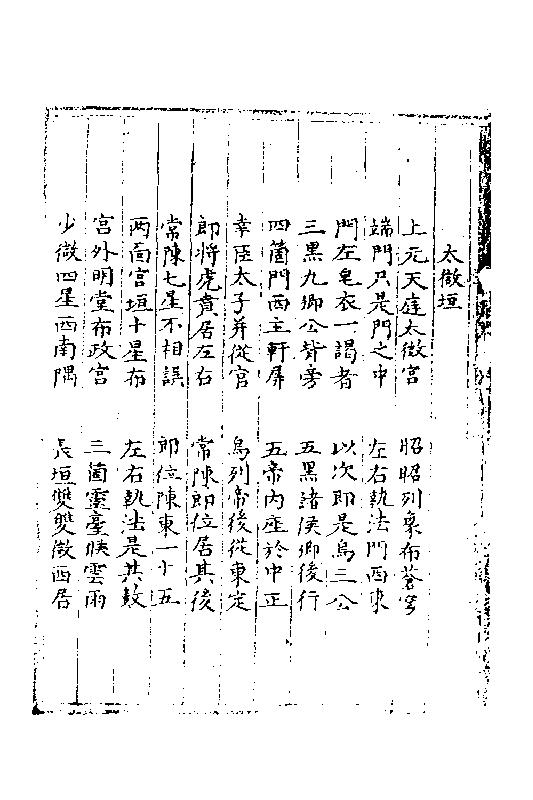 太微垣
上元天庭太微宮 昭昭列象布蒼穹
端門只是門之中 左右執法門西東
門左皂衣一謁者 以次即是烏三公
三黑九卿公背旁 五黑諸侯卿後行
四箇門西主軒屏 五帝內座於中正
幸臣太子并從官 烏列帝後從東定
郎將虎賁居左右 常陳郎位居其後
常陳七星不相誤 郎位陳東一十五
兩面宮垣十星布 左右執法是其數
宮外明堂布政宮 三箇靈臺候雲雨
少微四星西南隅 長垣雙雙微西居